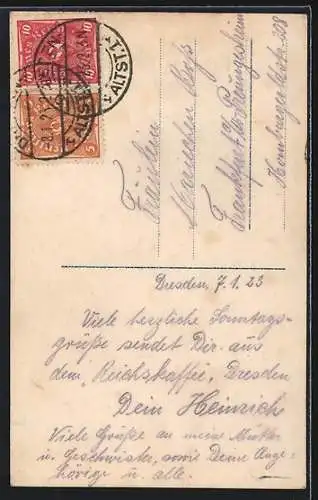 Fräulein
Mariechen
Frankfurt a/M. Preungesheim
Homburgerldstr. 208
Dresden, 7.1.23
Viele herzliche Sonntags-
grüße sendet Dir aus
dem "Reichskaffee" Dresden
Dein Heinrich
Viele Grüße an meine Mutter
u. Geschwister, sowie Deine Ange-
hörige u. alle.
10
10
5
ALTST. 1